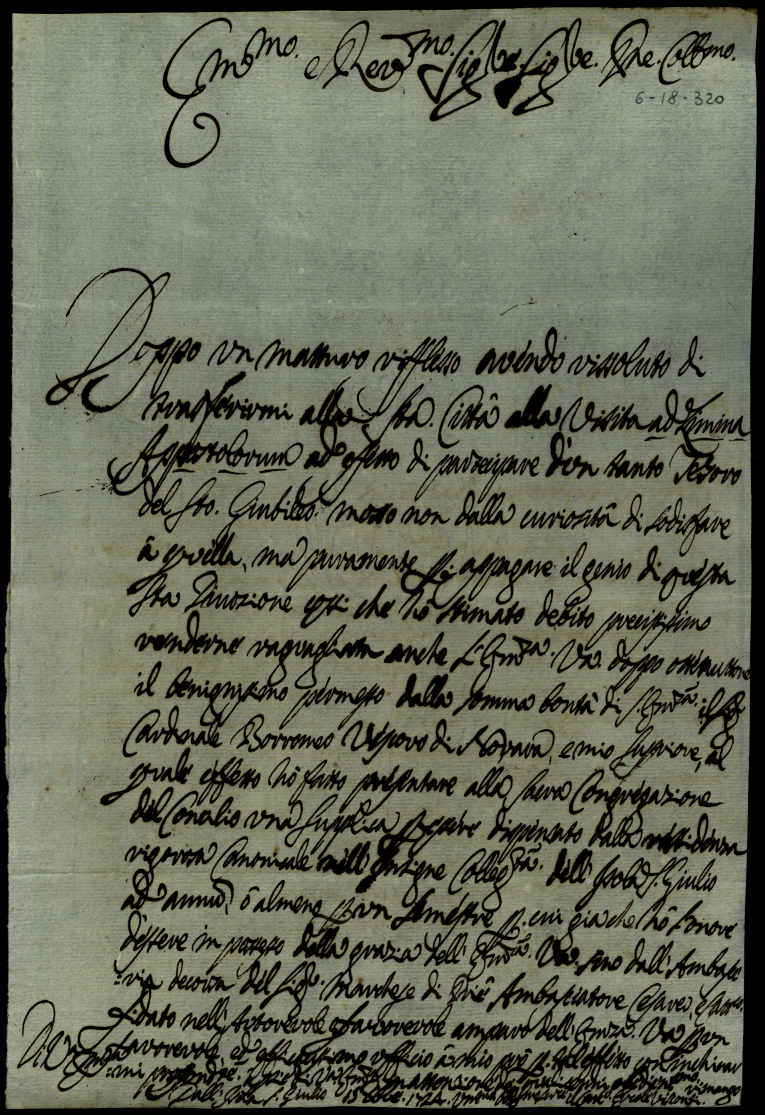 Em.mo e Rev.mo Sig.re Sig.re P.ne Coll.mo
6-18-320
Doppo un matturo rifflesso avendo rissoluto di
trasferirmi alla Sta. Città alla Visita ad Limina
Apostolorum ad effetto di participare d'un tanto Tesoro
del Sto. Giubileo: mosso non dalla curiosità di sodisfare
à quella, mà puramente p. appagare il genio di questa
Sta Divozione così che hò stimato debito precissimo
renderne raguagliata anche l'Em.za Va. doppo ottenutone
il benignissimo permesso dalla somma bontà di S. Em.za il Sig.
Cardinale Borromeo Vescovo di Novara, e mio Superiore, al
quale effetto hò fatto presentare alla Sacra Congregazione
del Concilio una Supplica p. essere dispensato dalla ressidenza
rigorosa Canonicale nell'Insigne Colleg.ta dell'Isola S. Giulio
ad annum, ò almeno p. un Semestre p. cui già che hò l'onore
d'essere in possesso della grazia dell'Em.za Va. sino dall'Ambasc-
:ria decorsa del Sig. Marchese di Priè Ambasciatore Cesareo
fidato nell'autorevole e favorevole amparo dell'Em.za Va p. un
favorevole, ed efficacissimo ufficio à mio prò p. tal effetto con inchinar-
:mi profondam.
Di V. Em.za
Dall'Isola S. Giulio 15 1724.